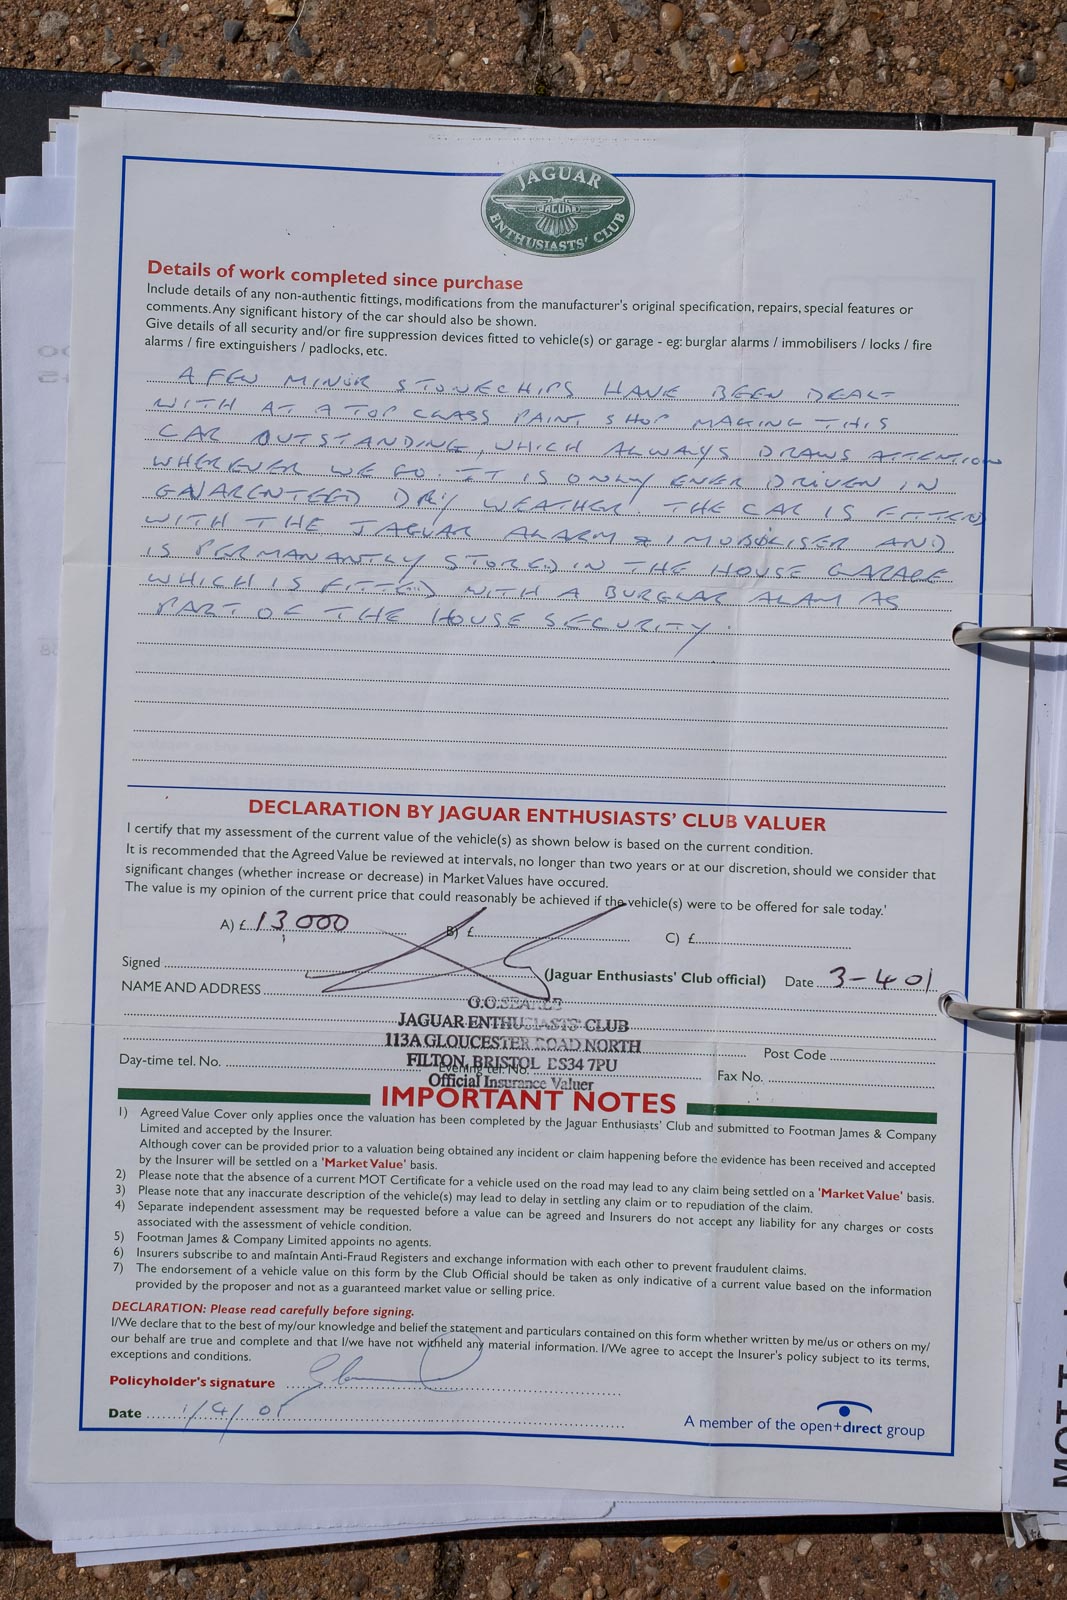 JAGUAR
JAGUAR
ENTHUSIASTS' CLUB
Details of work completed since purchase
Include details of any non-authentic fittings, modifications from the manufacturer's original specification, repairs, special features or
comments. Any significant history of the car should also be shown.
Give details of all security and/or fire suppression devices fitted to vehicle(s) or garage - eg: burglar alarms / immobilisers / locks / fire
alarms / fire extinguishers / padlocks, etc.
A FEW MINOR STONECHIPS HAVE BEEN DEALT
WITH AT A TOP CLASS PAINT SHOP MAKING THIS
CAR OUTSTANDING, WHICH ALWAYS DRAWS ATTENTION
WHEREVER WE GO. IT IS ONLY EVER DRIVEN IN
GAUARENTEED DRY WEATHER. THE CAR IS FITTED
WITH THE JAGUAR ALARM & IMOBOLISER AND
IS PERMANANTLY STORED IN THE HOUSE GARAGE
WHICH IS FITTED WITH A BURGLAR ALAM AS
PART OF THE HOUSE SECURITY.
DECLARATION BY JAGUAR ENTHUSIASTS' CLUB VALUER
I certify that my assessment of the current value of the vehicle(s) as shown below is based on the current condition.
It is recommended that the Agreed Value be reviewed at intervals, no longer than two years or at our discretion, should we consider that
significant changes (whether increase or decrease) in Market Values have occured.
The value is my opinion of the current price that could reasonably be achieved if the vehicle(s) were to be offered for sale today.'
A) £ 13,000 B) £ C) £
Signed (Jaguar Enthusiasts' Club official) Date 3-4 01
NAME AND ADDRESS
G.G.SEARLE
JAGUAR ENTHUSIASTS' CLUB
113A GLOUCESTER ROAD NORTH
Post Code
FILTON, BRISTOL BS34 7PU
Day-time tel. No. Evening tel. No. Fax No.
Official Insurance Valuer
IMPORTANT NOTES
1) Agreed Value Cover only applies once the valuation has been completed by the Jaguar Enthusiasts' Club and submitted to Footman James & Company
Limited and accepted by the Insurer.
Although cover can be provided prior to a valuation being obtained any incident or claim happening before the evidence has been received and accepted
by the Insurer will be settled on a 'Market Value' basis.
2) Please note that the absence of a current MOT Certificate for a vehicle used on the road may lead to any claim being settled on a 'Market Value' basis.
3) Please note that any inaccurate description of the vehicle(s) may lead to delay in settling any claim or to repudiation of the claim.
4) Separate independent assessment may be requested before a value can be agreed and Insurers do not accept any liability for any charges or costs
associated with the assessment of vehicle condition.
5) Footman James & Company Limited appoints no agents.
6) Insurers subscribe to and maintain Anti-Fraud Registers and exchange information with each other to prevent fraudulent claims.
7) The endorsement of a vehicle value on this form by the Club Official should be taken as only indicative of a current value based on the information
provided by the proposer and not as a guaranteed market value or selling price.
DECLARATION: Please read carefully before signing.
I/We declare that to the best of my/our knowledge and belief the statement and particulars contained on this form whether written by me/us or others on my/
our behalf are true and complete and that I/we have not withheld any material information. I/We agree to accept the Insurer's policy subject to its terms,
exceptions and conditions.
Policyholder's signature
Date 1/4/01
A member of the open+direct group